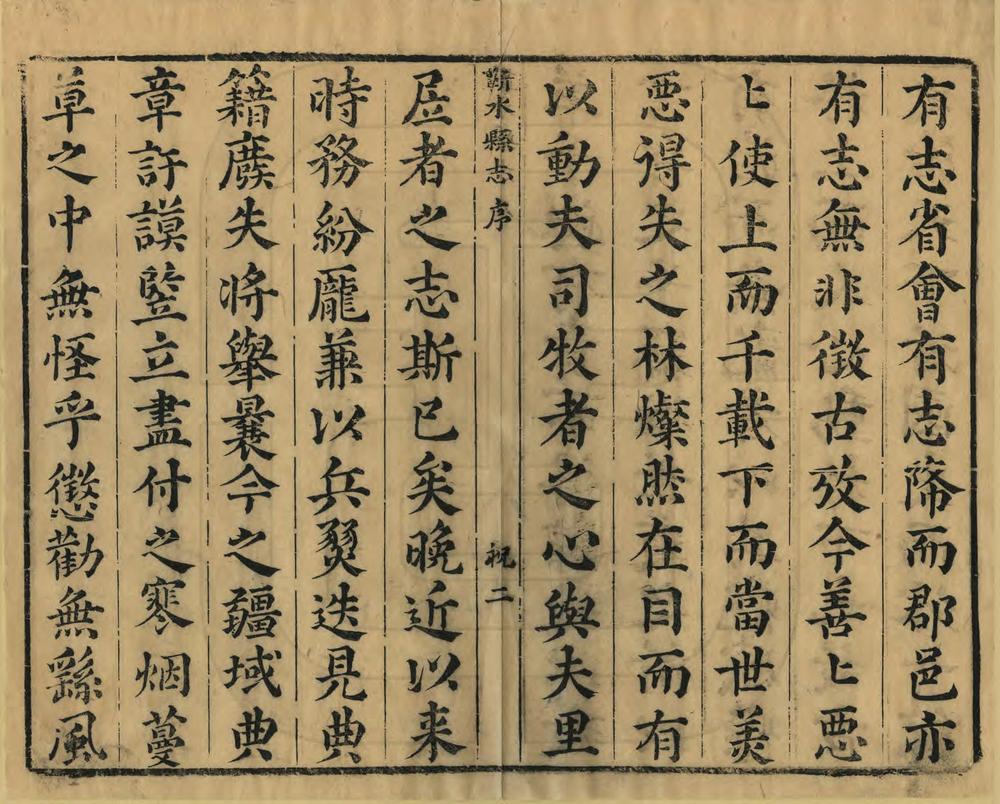 有志省會有志降而郡邑亦
有志無非徵古攷今善〻惡
〻使上而千載下而當世美
惡得失之林燦然在目而有
以動夫司牧者之心與夫里
蘄水縣志 序 祝 二
居者之志斯已矣晚近以来
時務紛龎兼以兵燹迭見典
籍廢失将舉曩今之疆域典
章訏謨豎立盡付之寒烟蔓
草之中無怪乎懲勸無繇風